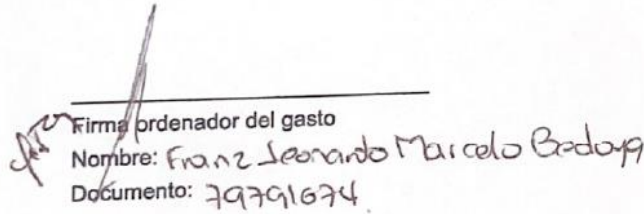 Firma ordenador del gasto
Nombre: Franz Leonardo Marcelo Bedoya
Documento: 79791674